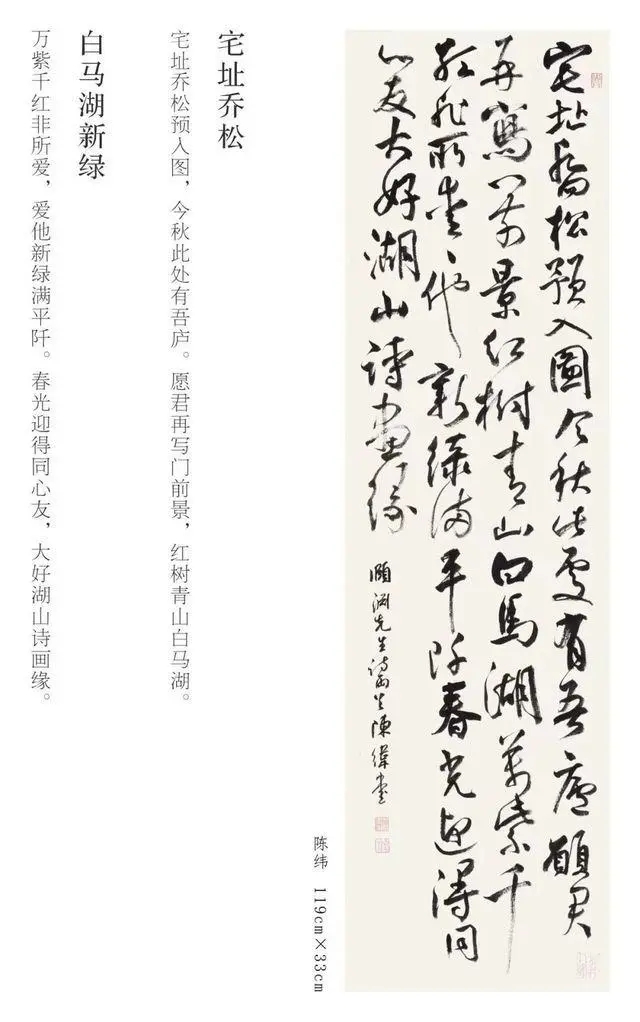 宅址喬松預入圖今秋此處有吾廬願君
再寫門前景紅樹青山白馬湖萬紫千
紅非所愛々他新綠滿平阡春光迎得同
心友大好湖山詩畫緣
頤淵先生詩 陳緯書
陈纬 119cm×33cm
宅址乔松
宅址乔松预入图，今秋此处有吾庐。愿君再写门前景，红树青山白马湖。
白马湖新绿
万紫千红非所爱，爱他新绿满平阡。春光迎得同心友，大好湖山诗画缘。